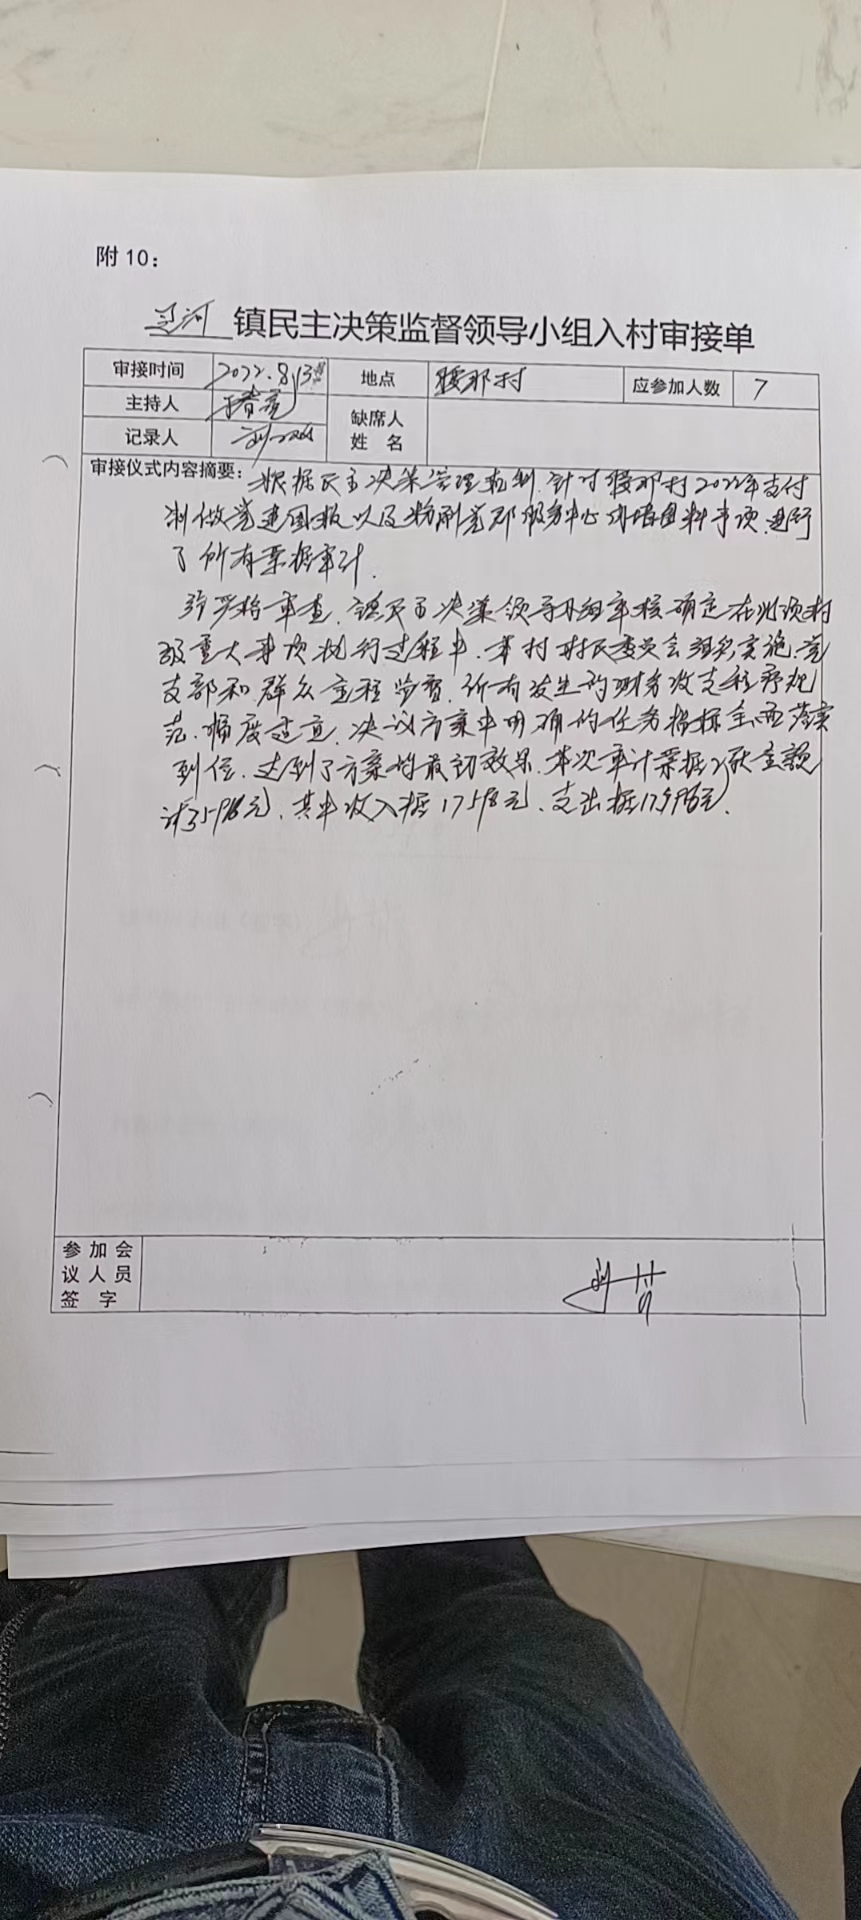 附10：
辽河镇民主决策监督领导小组入村审接单
审接时间 2022.8.13 地点 村 应参加人数 7
主持人 缺席人姓名
记录人
审接仪式内容摘要：根据民主决策管理机制，针对 村2022年支付
制做党建图板以及粉刷党群服务中心内墙 料事项，进行
了所有票据审计。
经严格审查，镇民主决策领导小组审核确定在此项村
级重大事项执行过程中，本村村民委员会组织实施，党
支部和群众全程监督，所有发生的财务收支程序规
范，幅度适宜，决议方案中明确的任务指标全面落实
到位，达到了方案的最初效果。本次审计票据2张金额
计 元，其中收入据 元，支出据 元。
参加会议人员签字